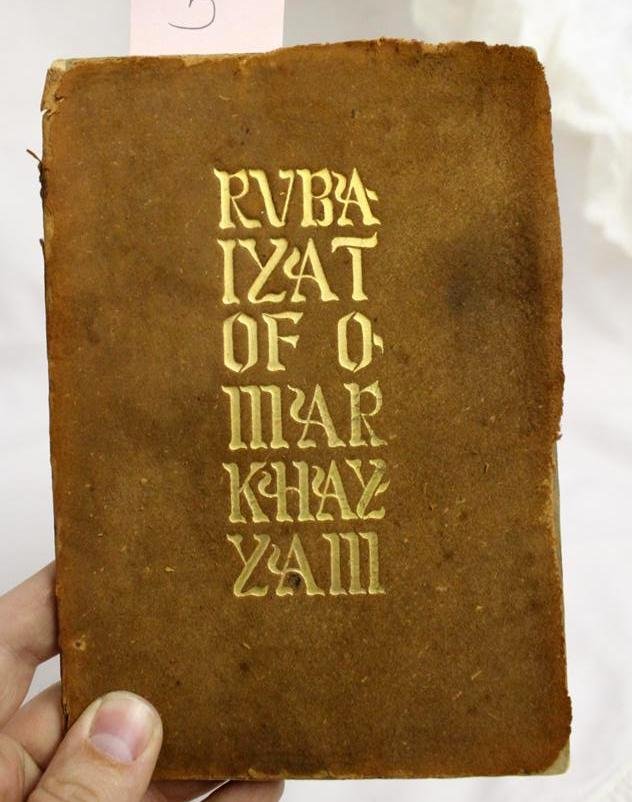 5
RVBA-
IYAT
OF O-
MAR
KHAY-
YAM